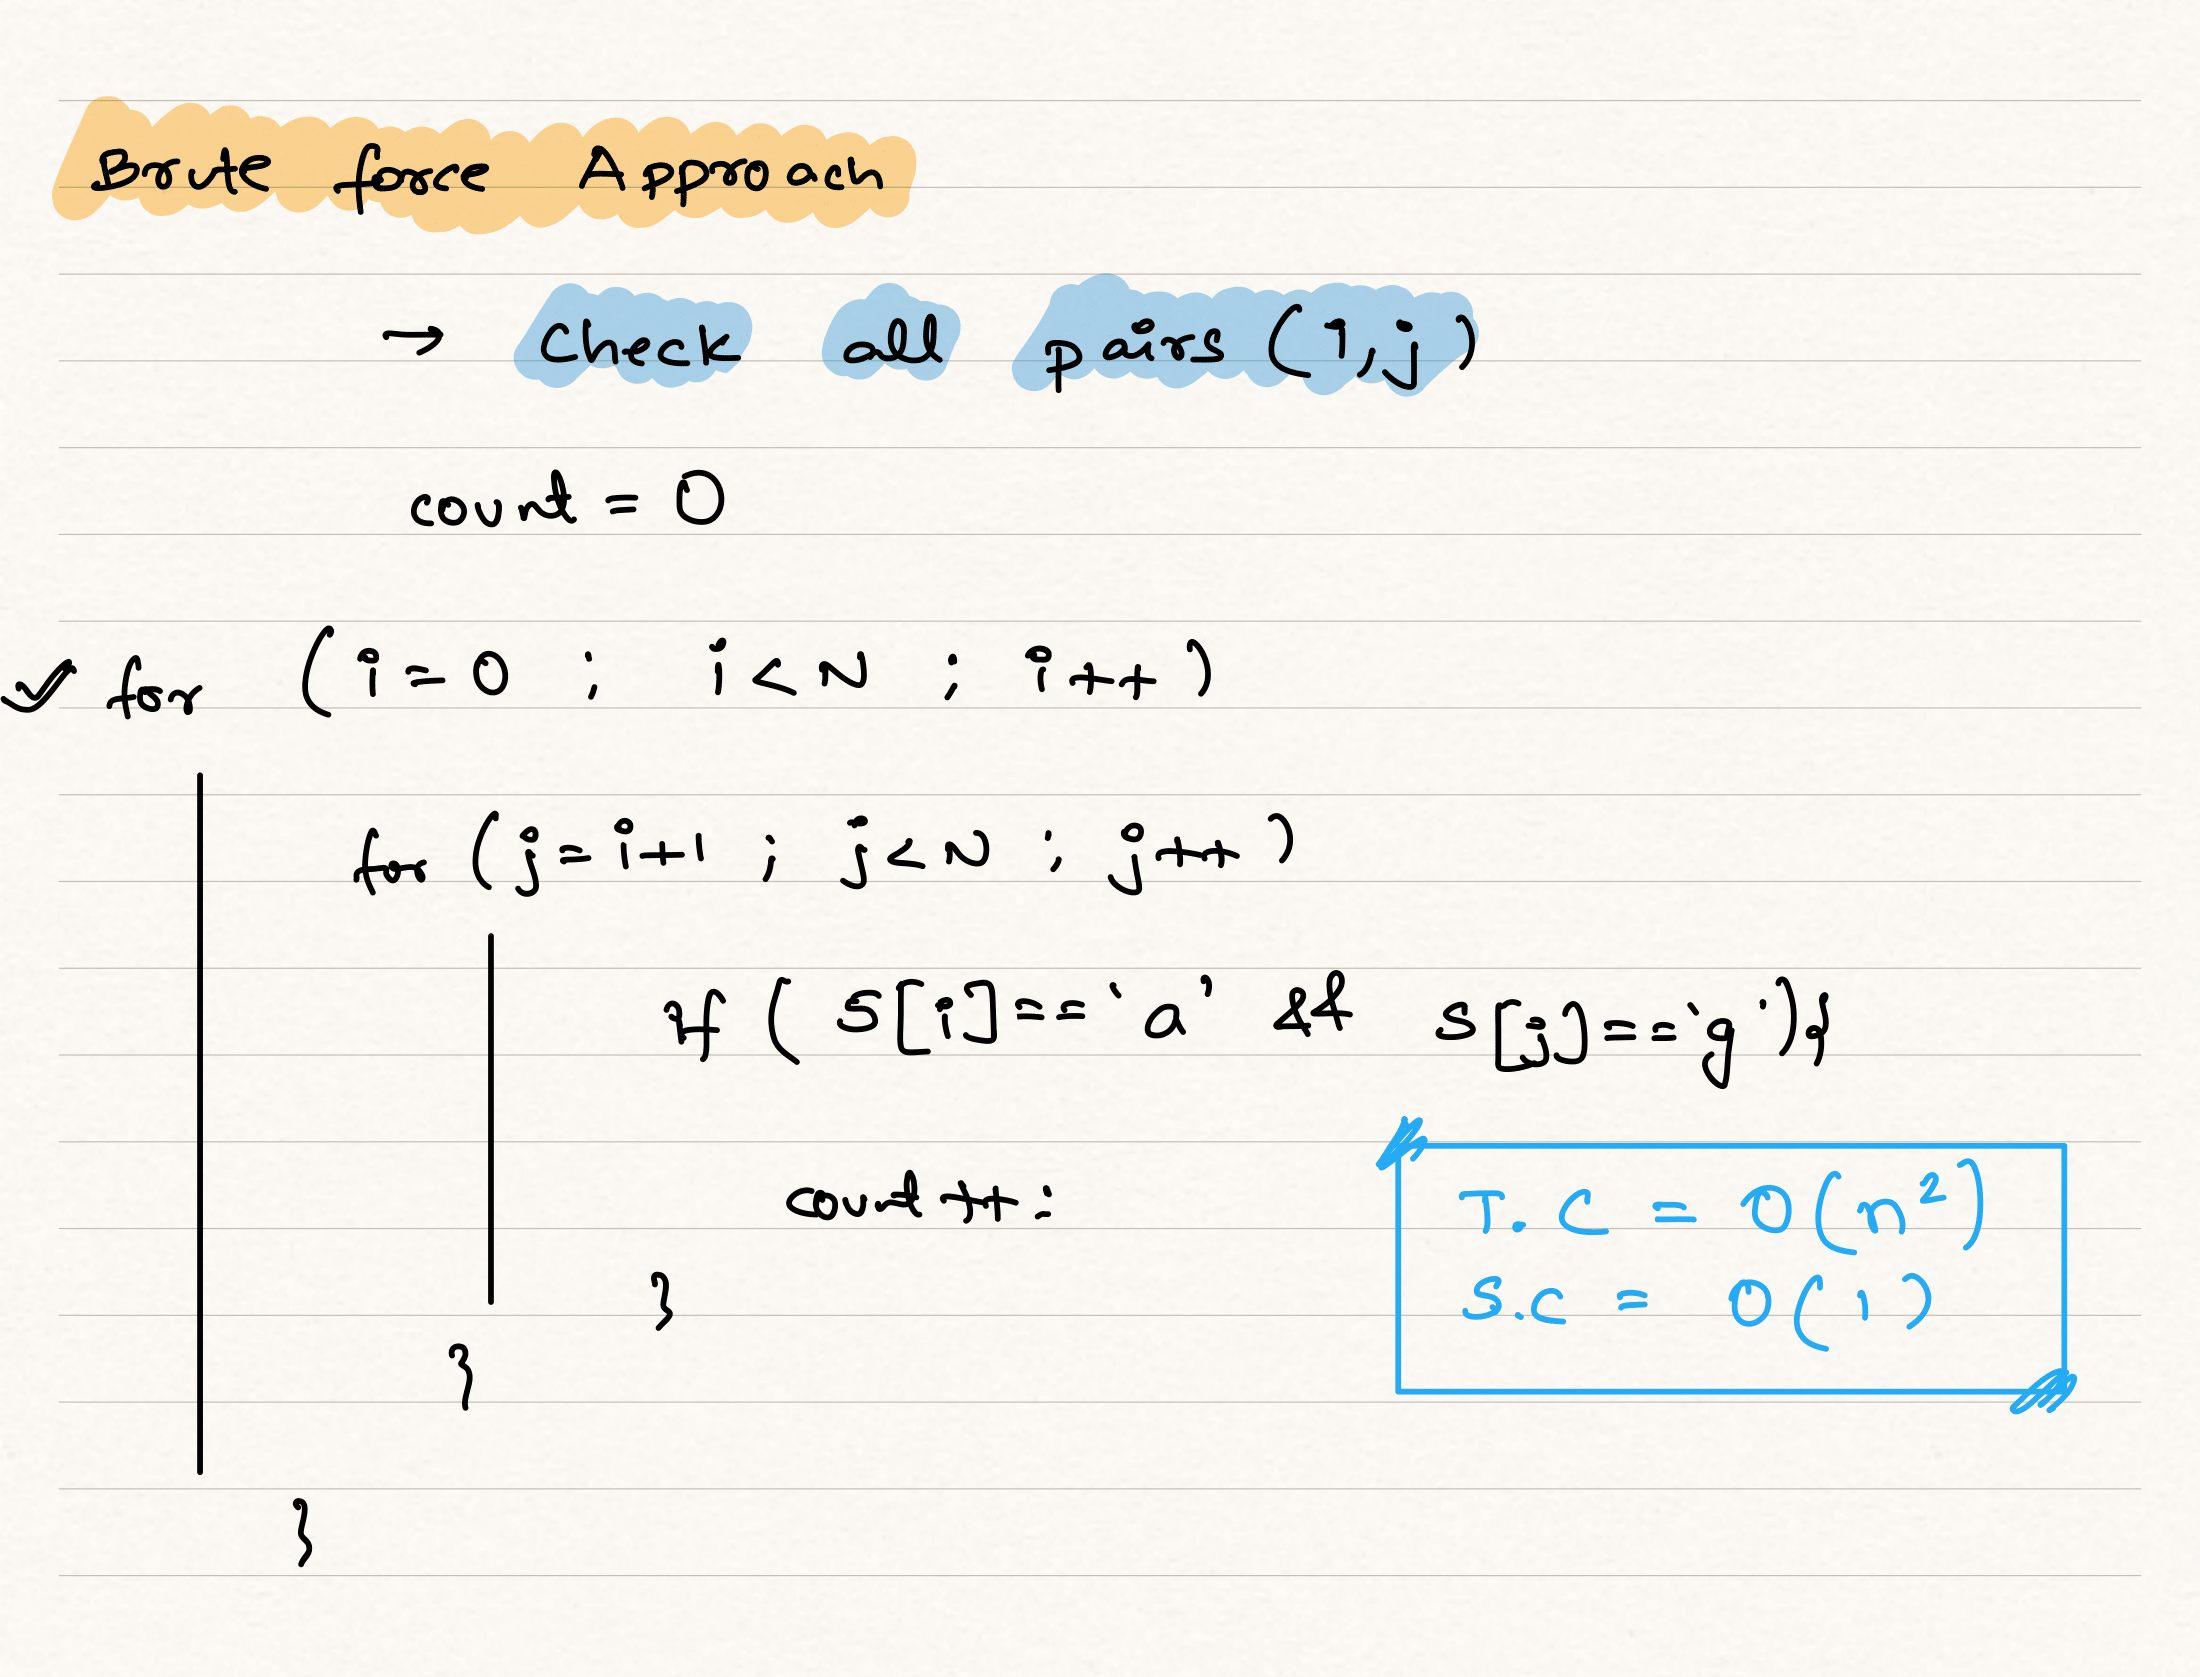 Brute force Approach
→ Check all pairs (i,j)
count = 0
✓ for (i=0 ; i<N ; i++)
for (j=i+1 ; j<N ; j++)
if ( S[i]=='a' && S[j]=='g'){
count++;
}
}
}
T.C = O(n²)
S.C = O(1)